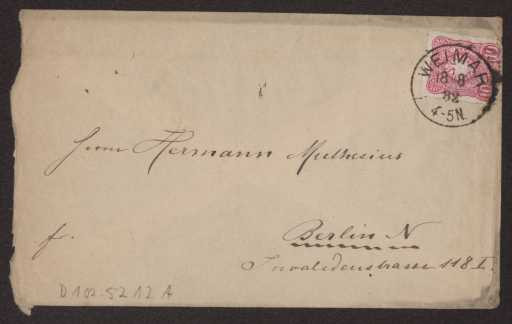 WEIMAR
18 8
82
4-5N.
Herrn Hermann Muthesius
fr.
Berlin N
Invalidenstrasse 118 I.
D 102-5212 A